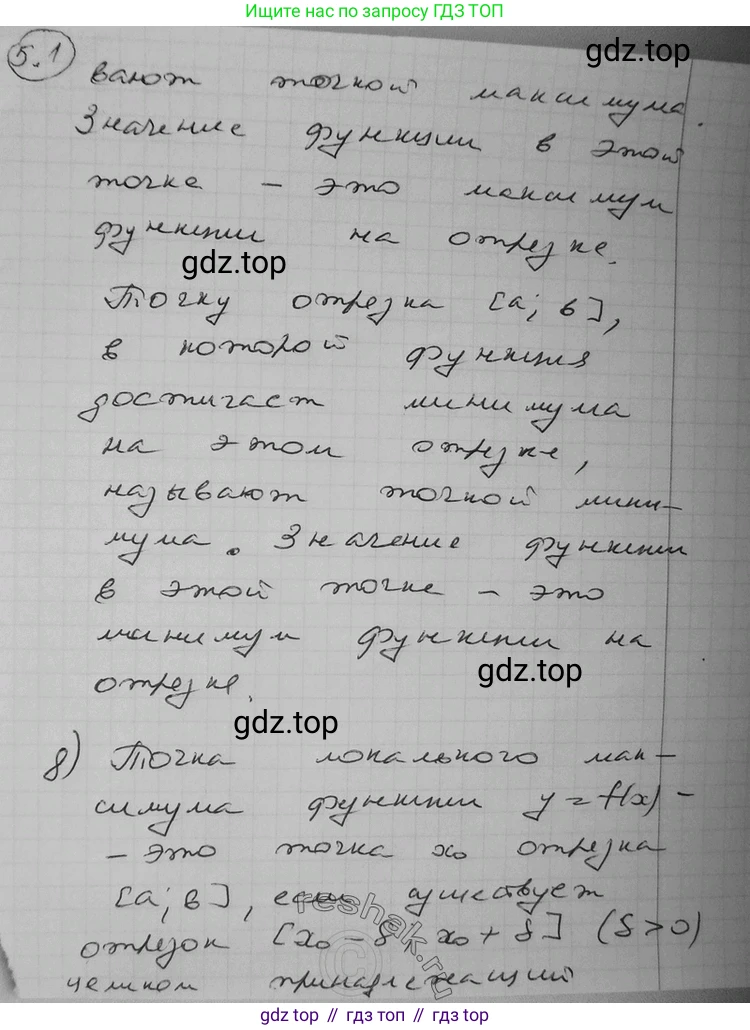 Ищите нас в интернете по запросу ГДЗ ТОП
5.1
gdz.top
вают точкой максимума.
Значение функции в этой
точке – это максимум
функции на отрезке.
gdz.top
Точку отрезка [a; в],
в которой функция
достигает минимума
на этом отрезке,
называют точкой мини-
мума. Значение функции
в этой точке – это
минимум функции на
gdz.top
отрезке.
gdz.top
8) Точка локального мак-
симума функции y = f(x) –
– это точка x₀ отрезка
[a; в], если существует
отрезок [x₀ – δ, x₀ + δ] (δ > 0)
целиком принадлежащий
reshak.ru
gdz.top // гдз.топ // гдз.top